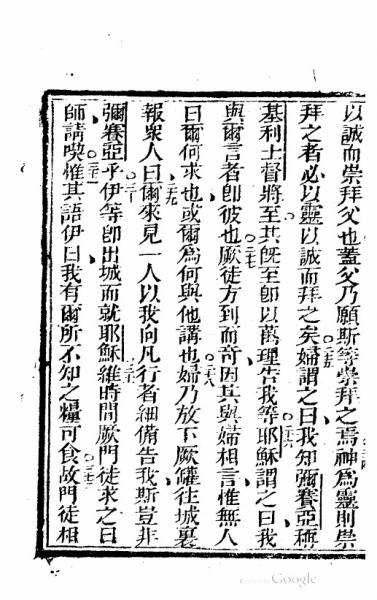 以誠而崇拜父也蓋父乃願斯等崇拜之焉神爲靈則崇
拜之者必以靈以誠而拜之矣婦謂之曰我知彌賽亞稱
基利士督將至其旣至卽以萬理告我等耶穌謂之曰我
與爾言者卽彼也厥徒方到而奇因其與婦相言惟無人
曰爾何求也或爾爲何與他講也婦乃放下厥罐往城裏
報衆人曰爾來見一人以我向凡行者細備告我斯豈非
彌賽亞乎伊等卽出城而就耶穌維時間厥門徒求之曰
師請喫惟其語伊曰我有爾所不知之糧可食故門徒相
Google